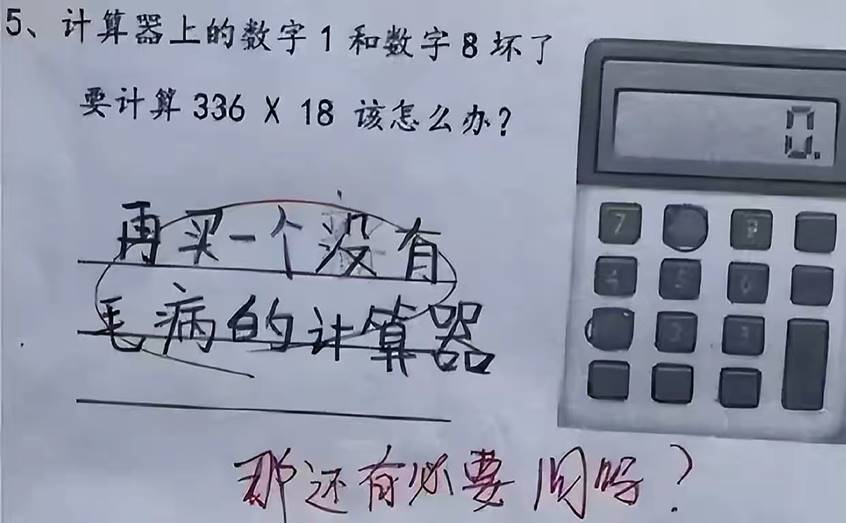 5、计算器上的数字1和数字8坏了
要计算336 X 18 该怎么办?
再买一个没有
毛病的计算器
那还有必要问吗?
0.
7 9
4 5 6
2 3